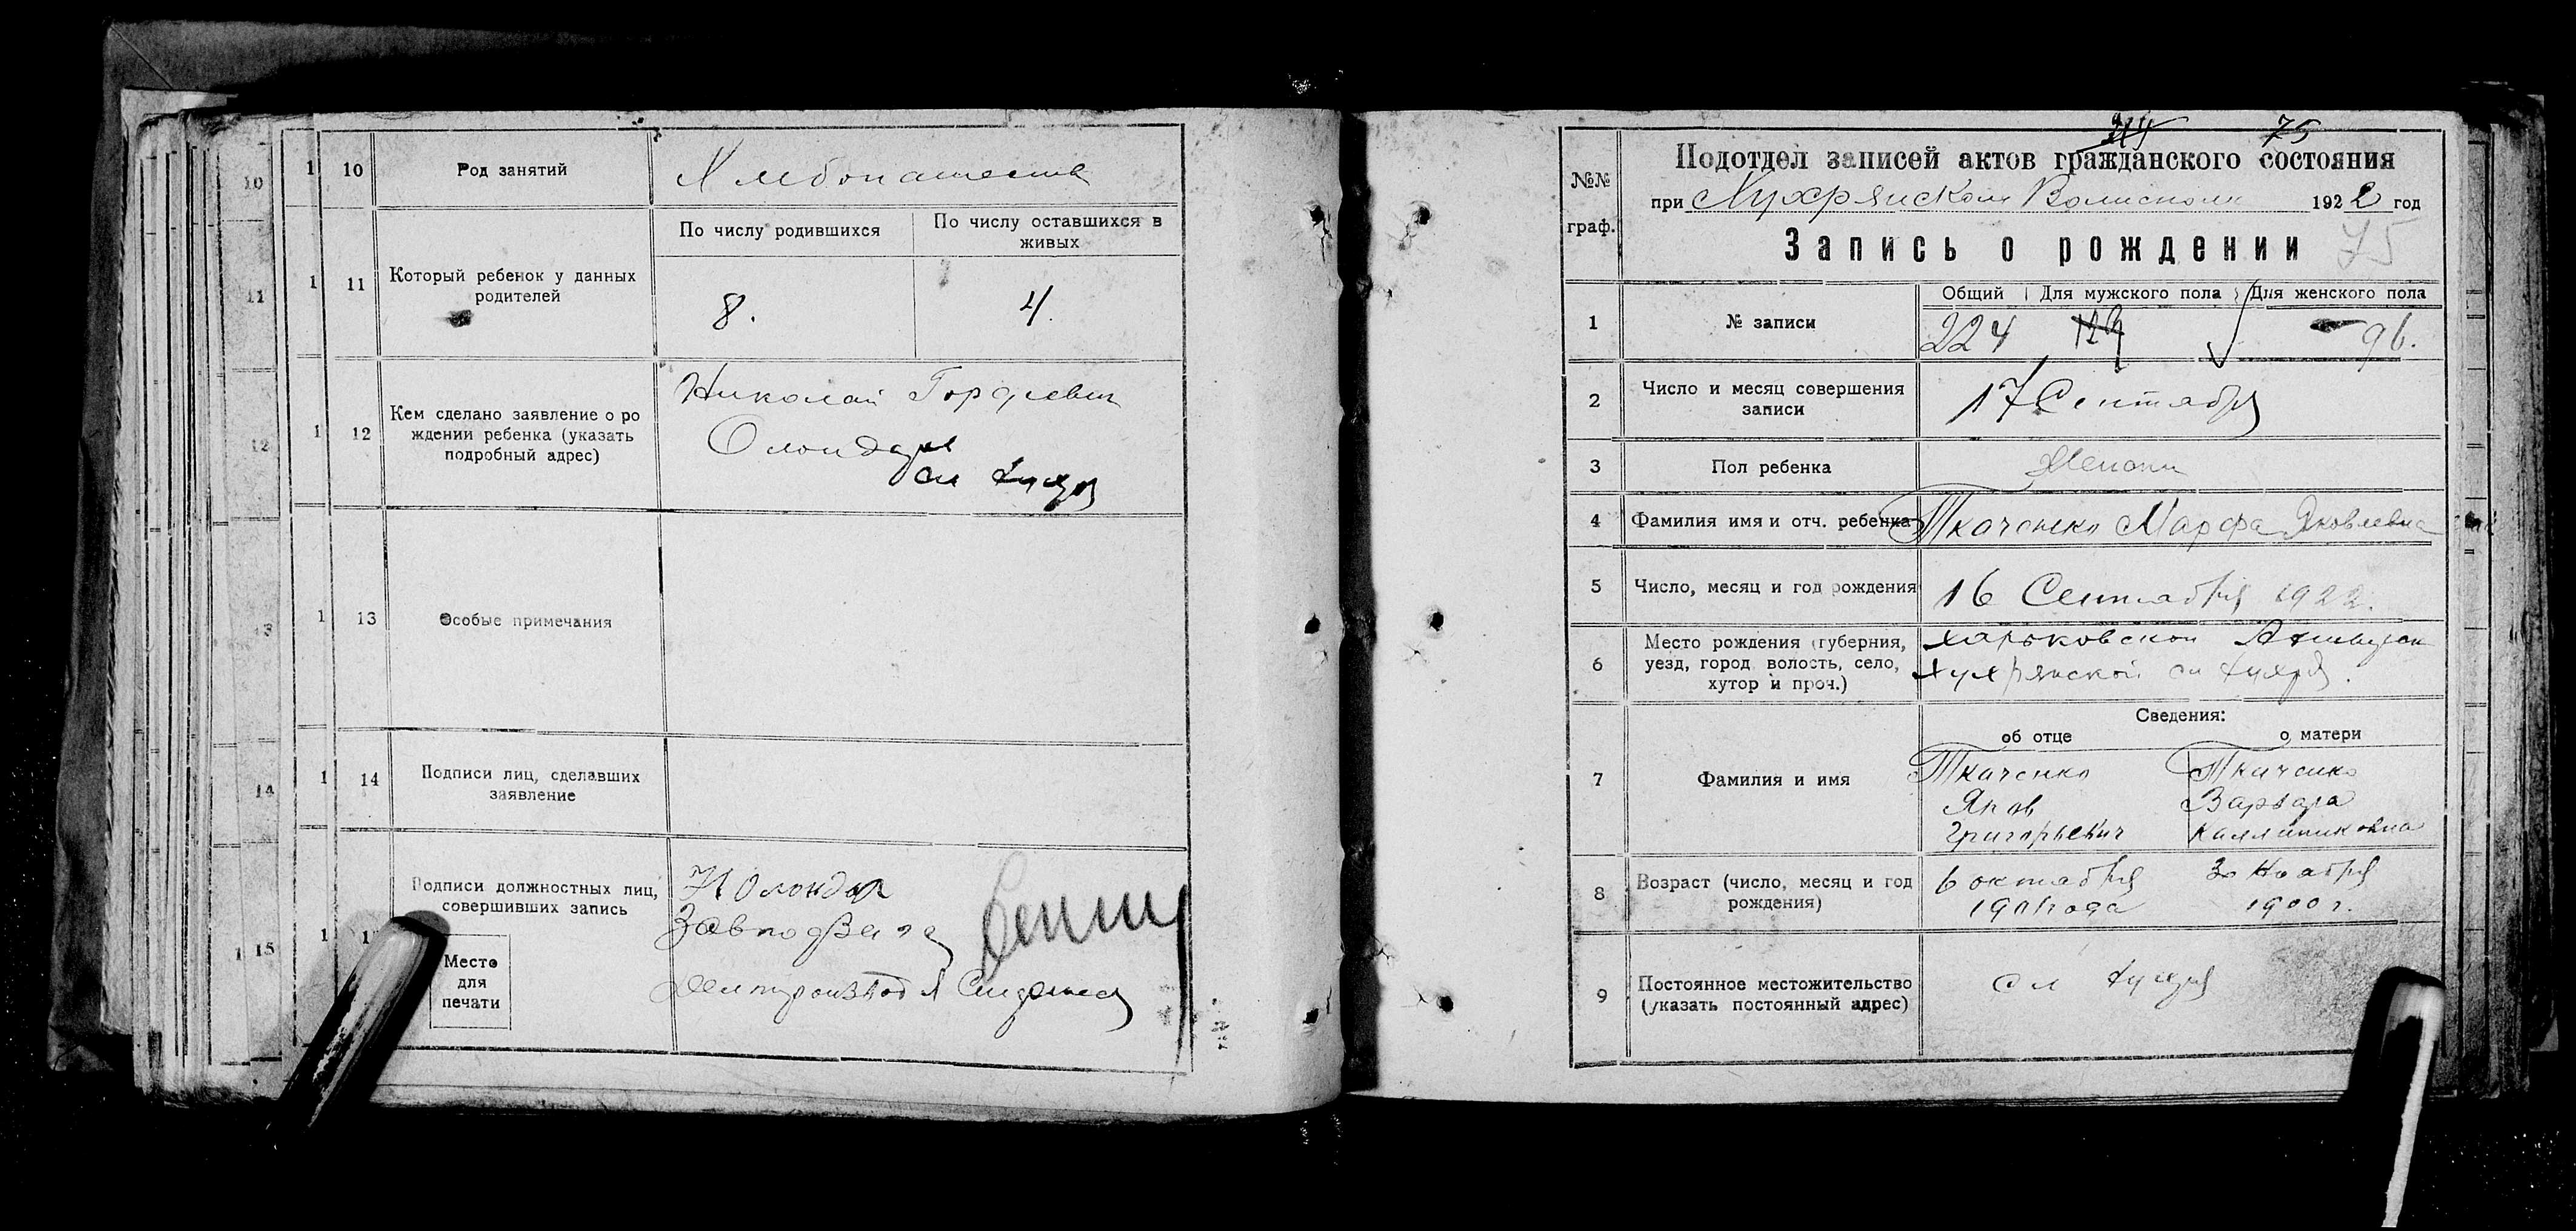 10
Род занятий
Хлебопашество
11
Который ребенок у данных родителей
По числу родившихся
По числу оставшихся в живых
8.
4.
12
Кем сделано заявление о ро
ждении ребенка (указать
подробный адрес)
Николай Гордиевич
сл Хухря
13
Особые примечания
14
Подписи лиц, сделавших
заявление
15
Подписи должностных лиц,
совершивших запись
Место
для
печати
75
Подотдел записей актов гражданского состояния
№№
граф.
при Хухрянском Волисполк 1922 год
Запись о рождении
75
Общий
Для мужского пола
Для женского пола
1
№ записи
224
96.
2
Число и месяц совершения
записи
17 Сентября
3
Пол ребенка
Женски
4
Фамилия имя и отч. ребенка
Ткаченко Марфа Яковлевна
5
Число, месяц и год рождения
16 Сентября 1922.
6
Место рождения (губерния,
уезд, город волость, село,
хутор и проч.)
Харьковской
Хухрянской сл Хухря.
Сведения:
об отце
о матери
7
Фамилия и имя
Ткаченко
Яков
Григорьевич
Ткаченко
Варвара
Каллиниковна
8
Возраст (число, месяц и год
рождения)
6 октября
1901 года
30 Ноября
1900 г.
9
Постоянное местожительство
(указать постоянный адрес)
сл Хухря